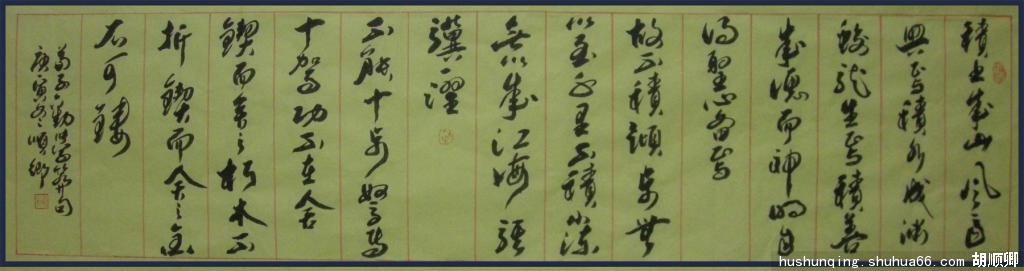 積土成山風雨
興焉積水成淵
蛟龍生焉積善
成德而神明自
得聖心备焉
故不積蹞步無
以至千里不積小流
無以成江海騏
驥一躍
不能十步駑馬
十驾功不在舍
鍥而舍之朽木不
折鍥而舍之金
石可鏤
荀子勸學篇句
庚寅冬順卿
hushunqing.shuhua66.com 胡顺卿